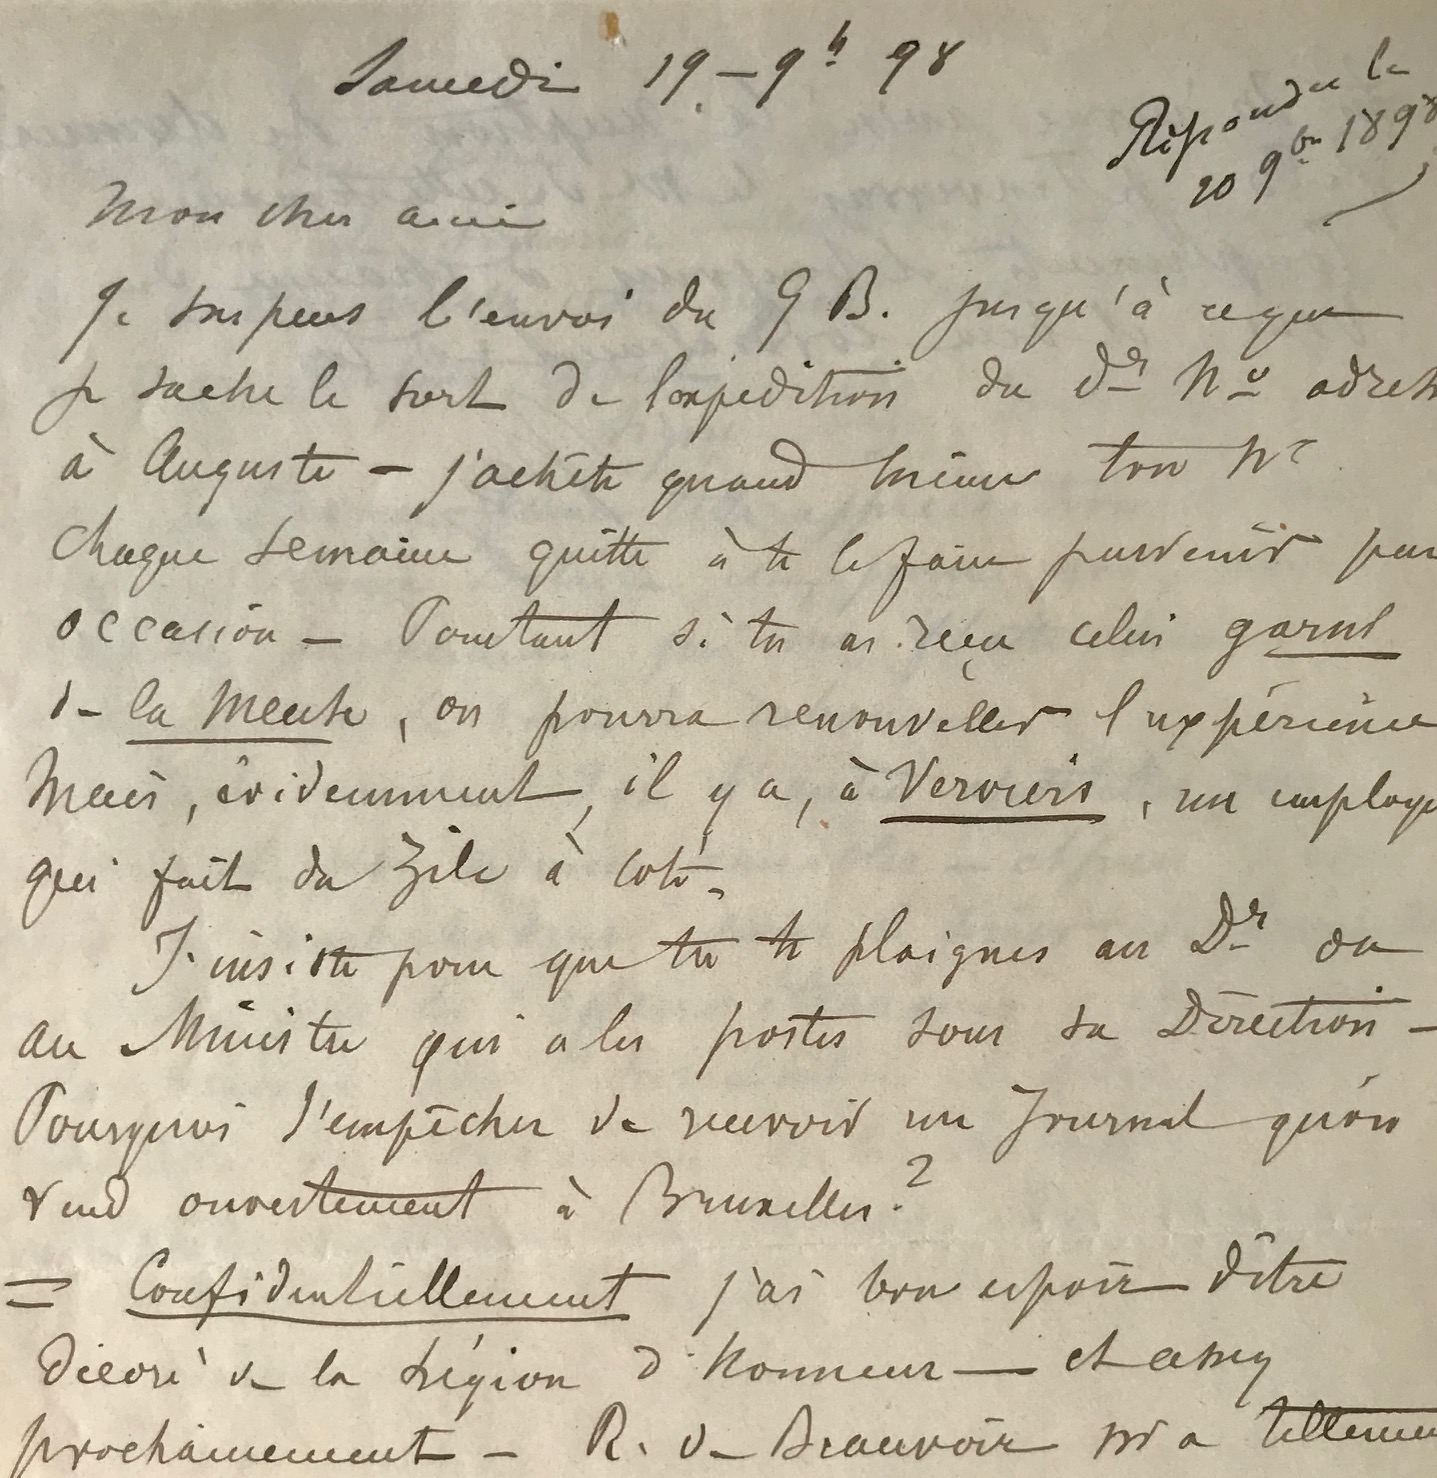 Samedi 19 – 9b 98
Répondue le
20 9bre 1898
Mon cher ami
Je suspens l'envoi du G B. jusqu'à ce que
je sache le sort de l'expedition du dr No adress
à Auguste – j'achète quand même ton No
chaque semaine quitte à te le faire parvenir par
occasion – Pourtant si tu as reçu celui garni
de la Meute, on pourra renouveller l'expérience
Mais, évidemment, il y a, à Verviers, un employé
qui fait du Zèle à coté.
J'insiste pour que tu te plaignes au Dr ou
au Ministre qui a les postes sous sa Direction –
Pourquoi t'empêcher de recevoir un Journal qu'on
vend ouvertement à Bruxelles ?
= Confidentiellement j'ai bon espoir d'être
décoré de la Légion d'Honneur — et assez
prochainement – R. de Beauvoir m'a tellemen